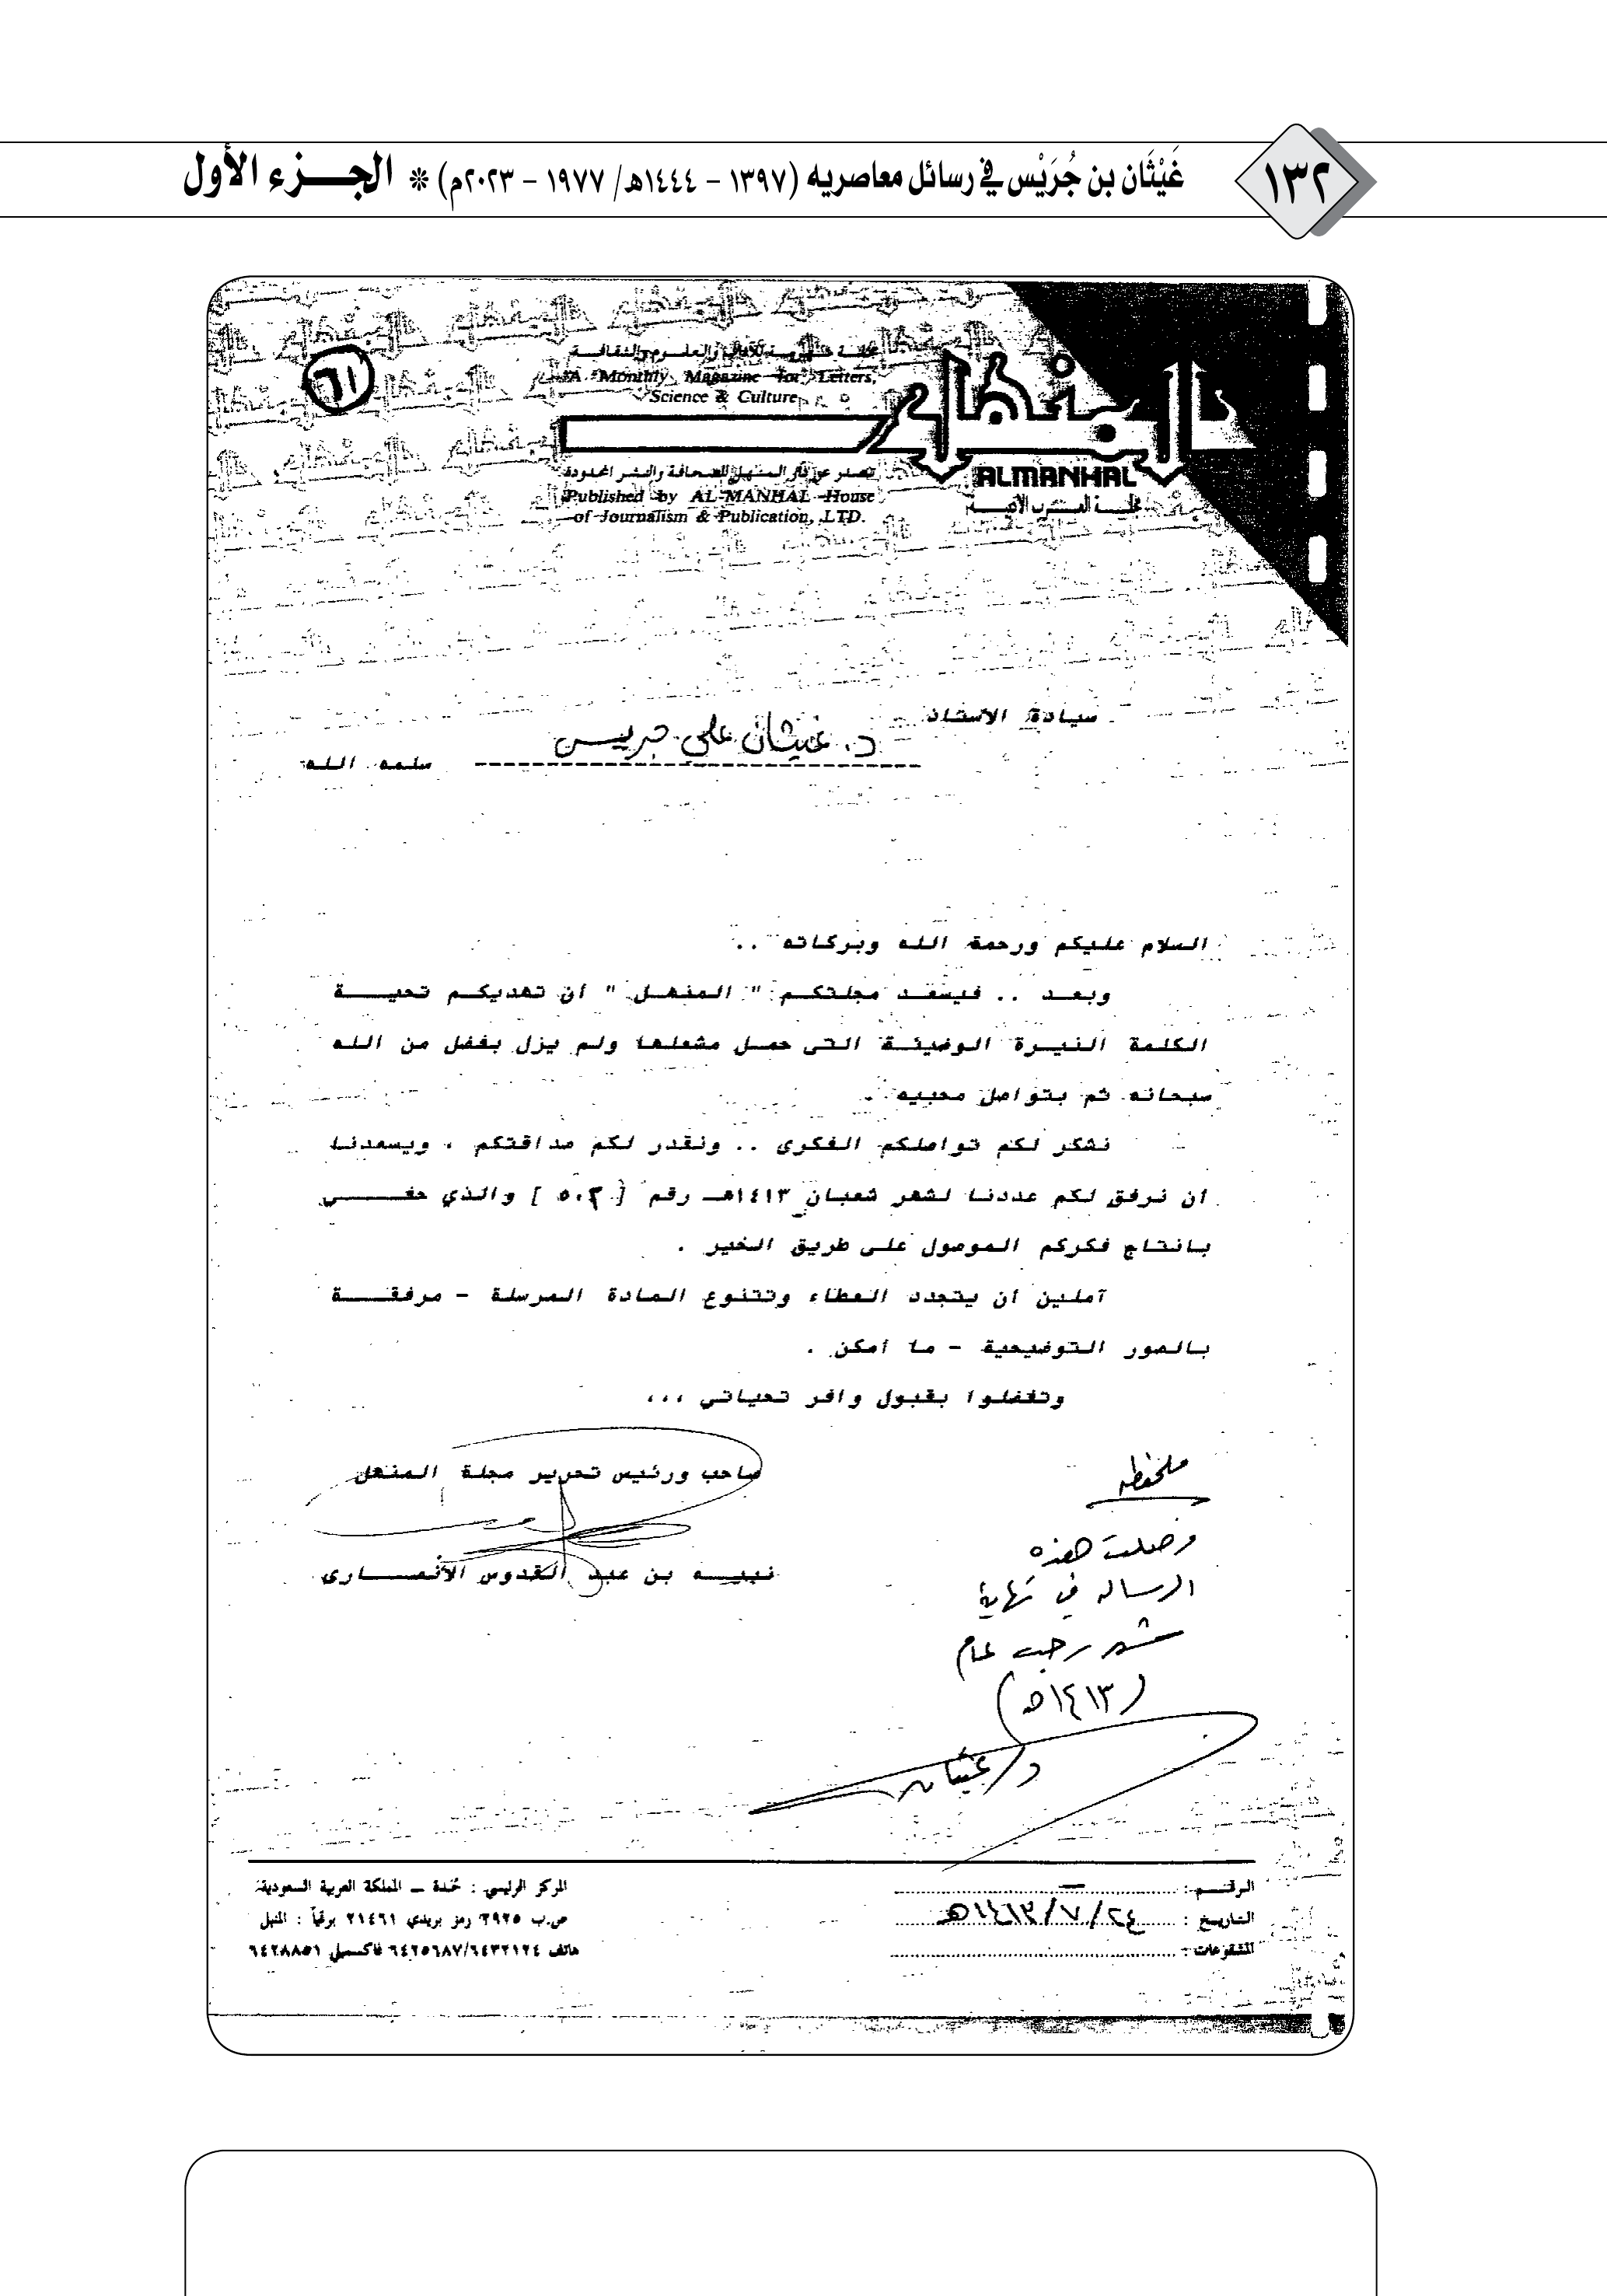 ١٣٢
غَيْثَان بن جُرَيْس في رسائل معاصريه (١٣٩٧ – ١٤٤٤هـ/ ١٩٧٧ – ٢٠٢٣م) ❊ الجـــزء الأول
٦١
مجلة شهرية للآداب والعلوم والثقافة
A Monthly Magazine for Letters,
Science & Culture
المنهل
تصدر عن دار المنهل للصحافة والنشر المحدودة
ALMANHAL
Published by AL-MANHAL House
of Journalism & Publication, LTD.
مجلة العرب الأدبية
سيادة الاستاذ
د. غيثان علي جريس
سلمه الله
السلام عليكم ورحمة الله وبركاته ..
وبعد .. فيسعد مجلتكم " المنهل " أن تهديكم تحية
الكلمة النيرة الوضيئة التى حمل مشعلها ولم يزل بفضل من الله
سبحانه ثم بتواصل محبيه .
نشكر لكم تواصلكم الفكرى .. ونقدر لكم صداقتكم ، ويسعدنا
ان نرفق لكم عددنا لشهر شعبان ١٤١٣هـ رقم [ ٥٠٢ ] والذي حفـــي
بانتاج فكركم الموصول على طريق الخير .
آملين أن يتجدد العطاء وتتنوع المادة المرسلة - مرفقـــة
بالصور التوضيحية - ما أمكن .
وتفضلوا بقبول وافر تحياتي ،،،
صاحب ورئيس تحرير مجلة المنهل
نبيـــه بن عبد القدوس الأنصـــارى
ملحظه
وصلت هذه
الرساله في نهاية
شهر رجب عام
(١٤١٣هـ)
د/ غيثان
الرقـــم : –
التاريخ : ٢٤/٧/١٤١٣هـ
المشفوعات :
المركز الرئيسي : جُدة ــ المملكة العربية السعودية
ص.ب ٢٩٢٥ رمز بريدي ٢١٤٦١ برقياً : المنهل
هاتف ٦٤٣٢١٢٤/٦٤٢٥٦٨٧ فاكسميلي ٦٤٢٨٨٥١